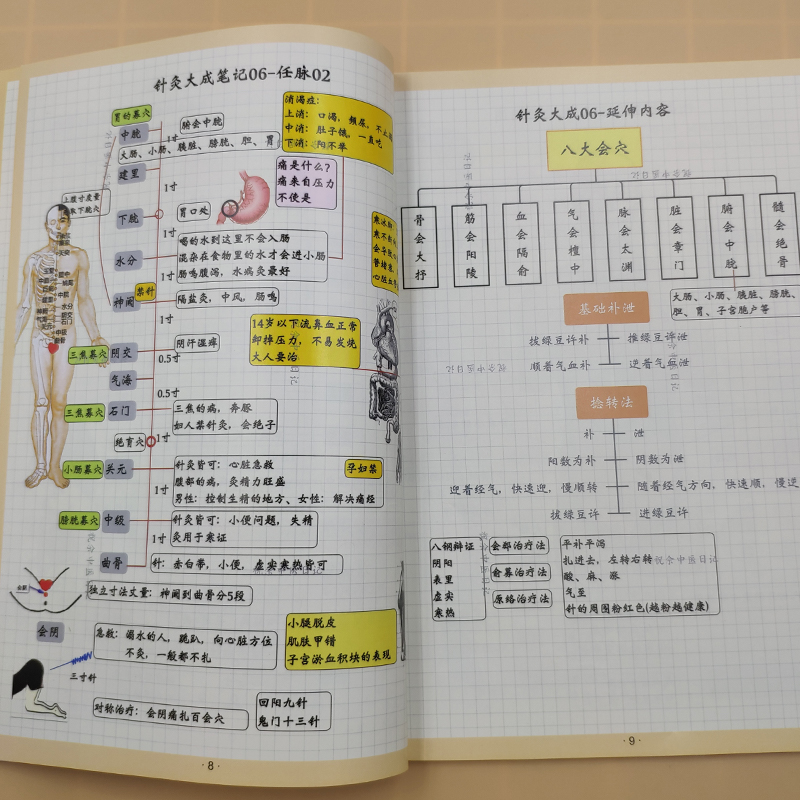 针灸大成笔记06-任脉02
胃的募穴
中脘
腑会中脘
消渴症:
上消: 口渴, 频尿, 不止
中消: 肚子饿, 一直吃
下消: 阳不举
1寸
大肠、小肠、胰脏、膀胱、胆、胃
建里
痛是什么?
痛来自压力
不使是
1寸
上腹寸度量
下脘
胃口处
1寸
水分
喝的水到这里不会入肠
混杂在食物里的水才会进小肠
肠鸣腹泻, 水病灸最好
1寸
神阙
禁针
隔盐灸, 中风, 肠鸣
1寸
14岁以下流鼻血正常
卸掉压力, 不易发烧
大人要治
三焦募穴
阴交
阴汗湿痒
0.5寸
气海
0.5寸
三焦募穴
石门
三焦的病, 奔豚
妇人禁针灸, 会绝子
绝育穴
1寸
小肠募穴
关元
针灸皆可: 心脏急救
腹部的病, 灸精力旺盛
男性: 控制生精的地方、女性: 解决痛经
孕妇禁
1寸
膀胱募穴
中级
针灸皆可: 小便问题, 失精
灸用于寒证
1寸
曲骨
针: 赤白带, 小便, 虚实寒热皆可
独立寸法丈量: 神阙到曲骨分5段
会阴
急救: 溺水的人, 跪趴, 向心脏方位
不灸, 一般都不扎
小腿脱皮
肌肤甲错
子宫淤血积块的表现
三寸针
对称治疗: 会阴痛扎百会穴
回阳九针
鬼门十三针
·8·
针灸大成06-延伸内容
八大会穴
骨会大抒
筋会阳陵
血会隔俞
气会檀中
脉会太渊
脏会章门
腑会中脘
髓会绝骨
大肠、小肠、胰脏、膀胱、
胆、胃、子宫胞户等
基础补泄
拔绿豆许补
推绿豆许泄
顺着气血补
逆着气血泄
捻转法
补
泄
阳数为补
阴数为泄
迎着经气, 快速迎, 慢顺转
随着经气方向, 快速顺, 慢逆
拔绿豆许
进绿豆许
八钢辩证
阴阳
表里
虚实
寒热
会郄治疗法
俞募治疗法
原络治疗法
平补平泻
扎进去, 左转右转
酸、麻、涨
气至
针的周围粉红色(越粉越健康)
·9·